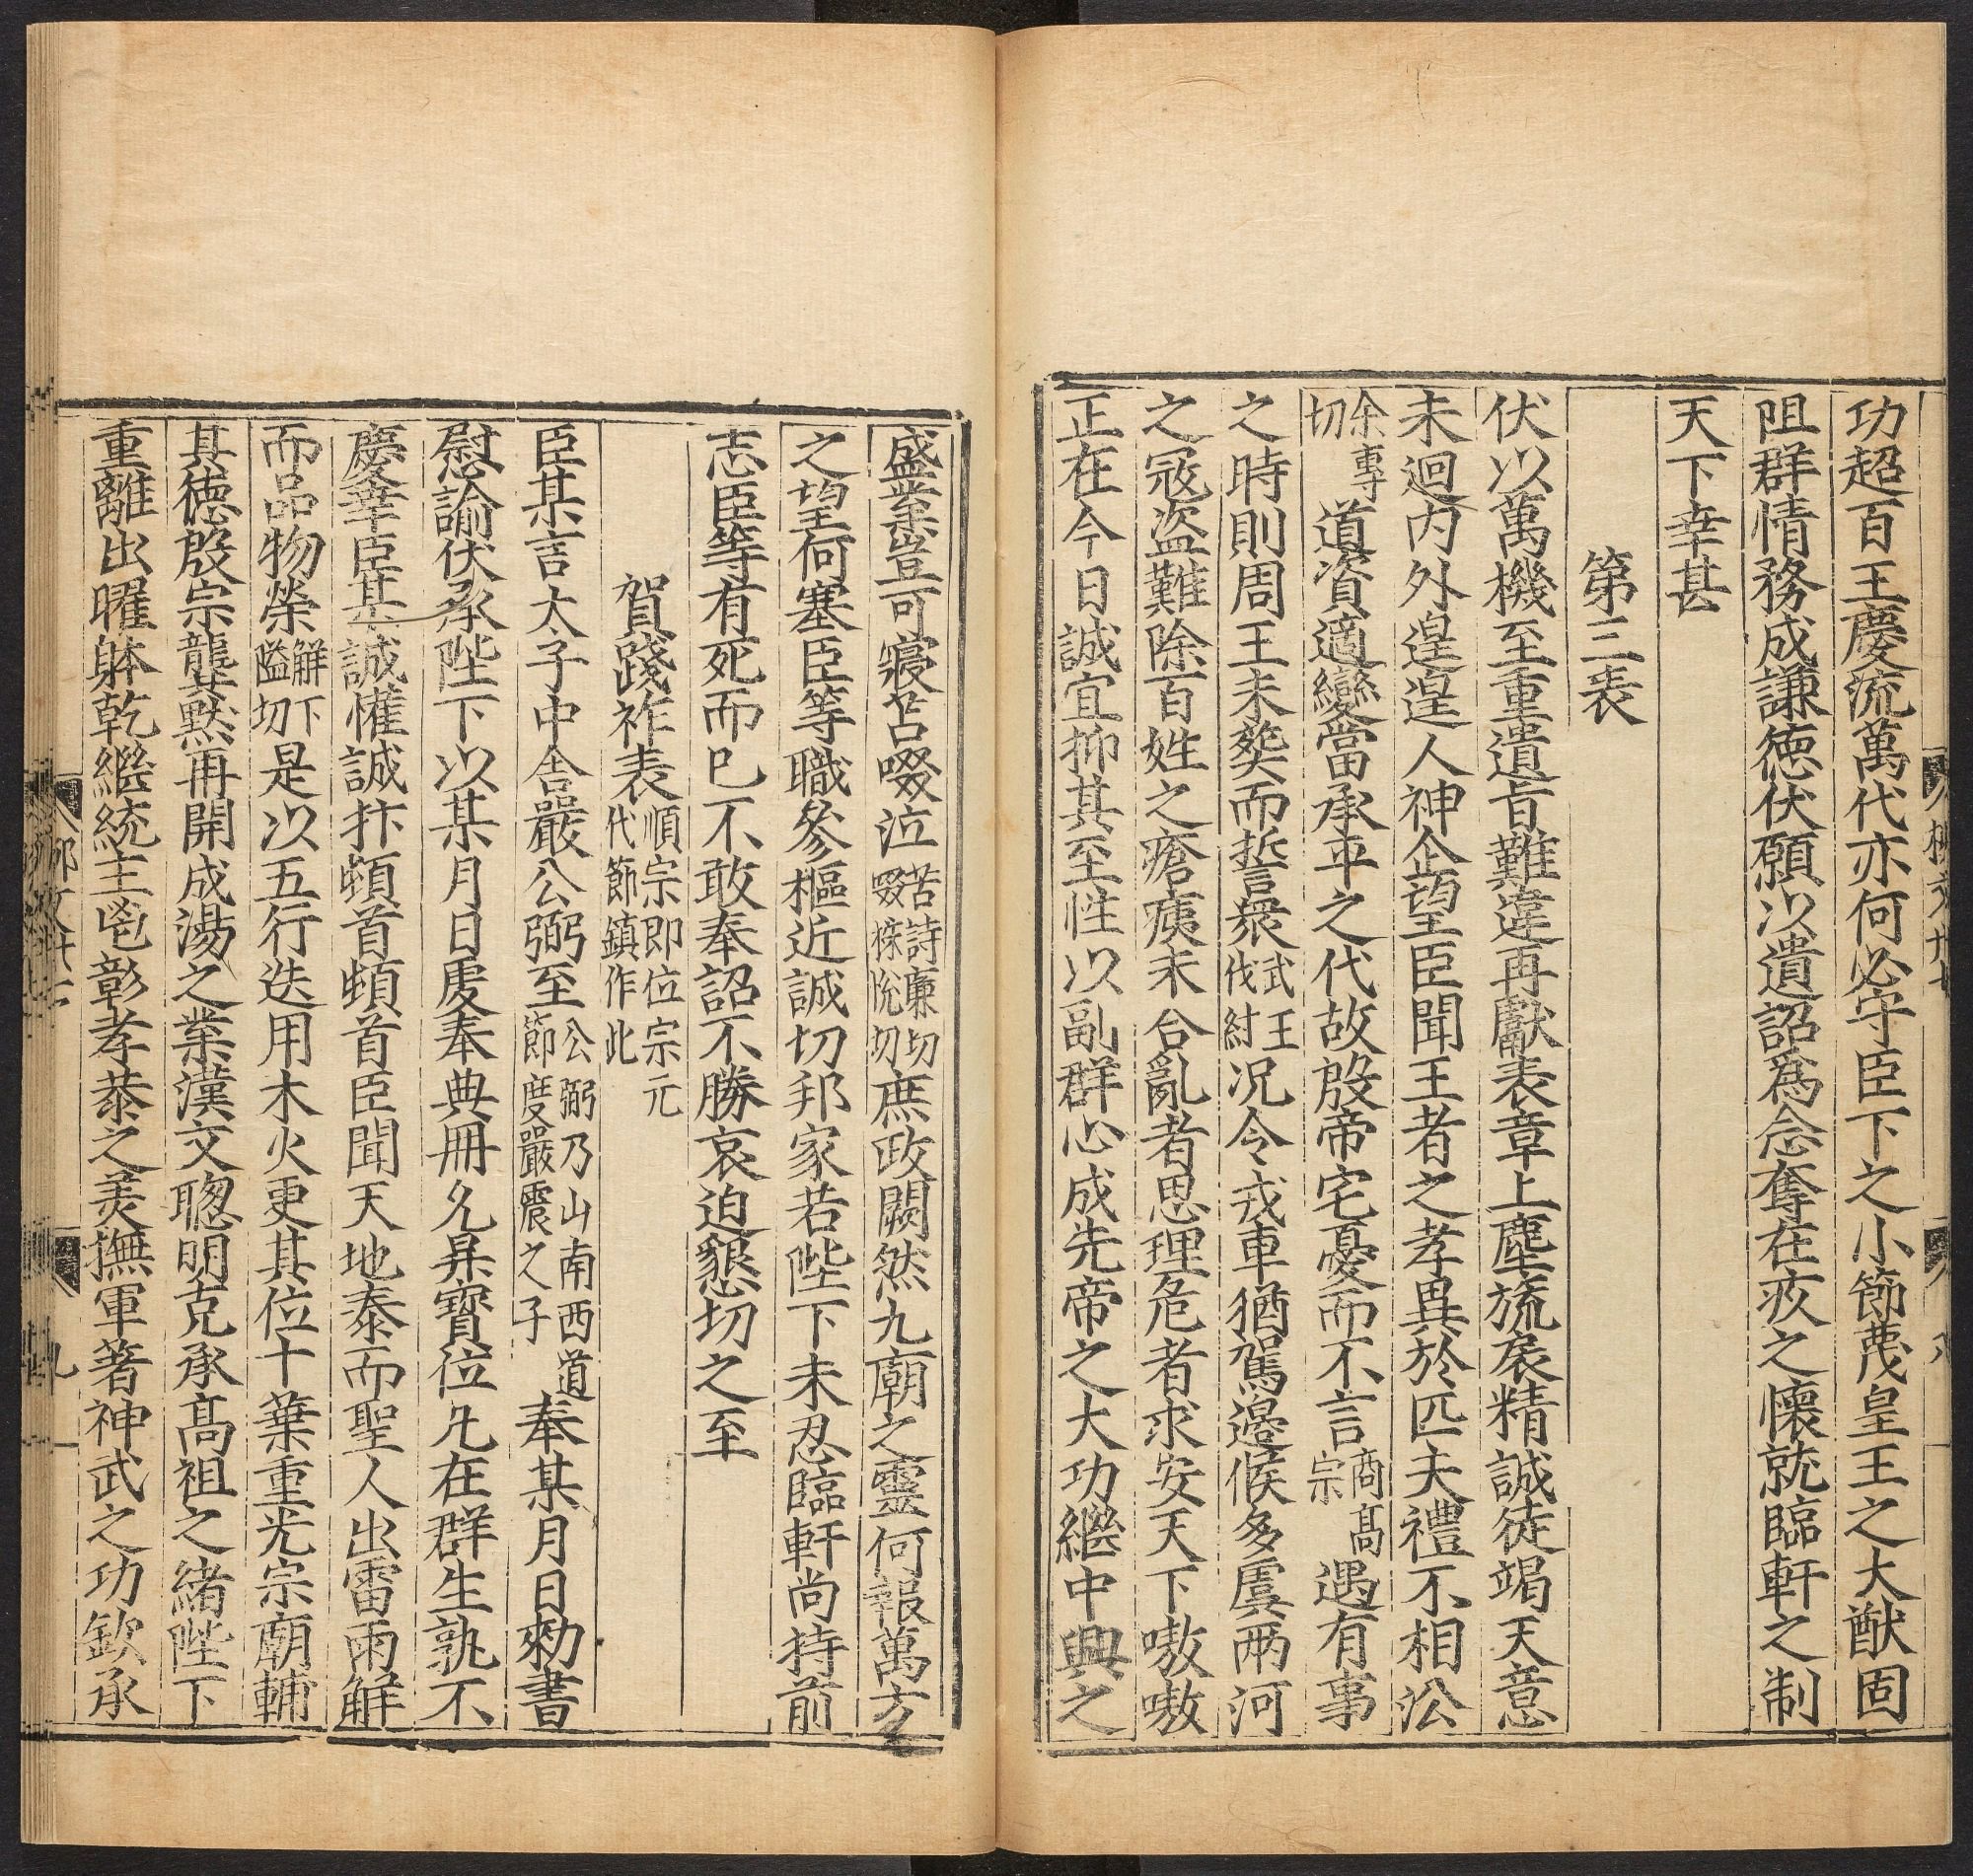 功超百王慶流萬代亦何必守臣下之小節蔑皇王之大猷固
阻群情務成謙徳伏願以遺詔爲念奪在疚之懷就臨軒之制
天下幸甚
第三表
伏以萬機至重遺旨難違再獻表章上塵旒扆精誠徒竭天意
未迴内外遑遑人神企望臣聞王者之孝異於匹夫禮不相㳂
余專切道資適變當承平之代故殷帝宅憂而不言商高宗遇有事
之時則周王未葬而誓衆武王伐紂况今戎車猶駕邉候多虞兩河
之冦盗難除百姓之瘡痍未合亂者思理危者求安天下嗷嗷
正在今日誠宜抑其至性以副群心成先帝之大功繼中興之
盛業豈可寢苫啜泣苫詩廉切啜株恱切庶政闕然九廟之靈何報萬方
之望何塞臣等職參樞近誠切邦家若陛下未忍臨軒尚持前
志臣等有死而巳不敢奉詔不勝哀迫懇切之至
賀踐祚表順宗即位宗元代節鎮作此
臣某言太子中舍嚴公弼至公弼乃山南西道節度嚴震之子奉某月日勑書
慰諭伏承陛下以某月日虔奉典冊允昇寳位凡在群生孰不
慶幸臣某誠懽誠抃頓首頓首臣聞天地泰而聖人出雷雨解
而品物榮解下隘切是以五行迭用木火更其位十葉重光宗廟輔
其徳殷宗龔默再開成湯之業漢文聰明克承髙祖之緒陛下
重離出曜躰乾繼統主鬯彰孝恭之美撫軍著神武之功欽承
柳文卅七
九